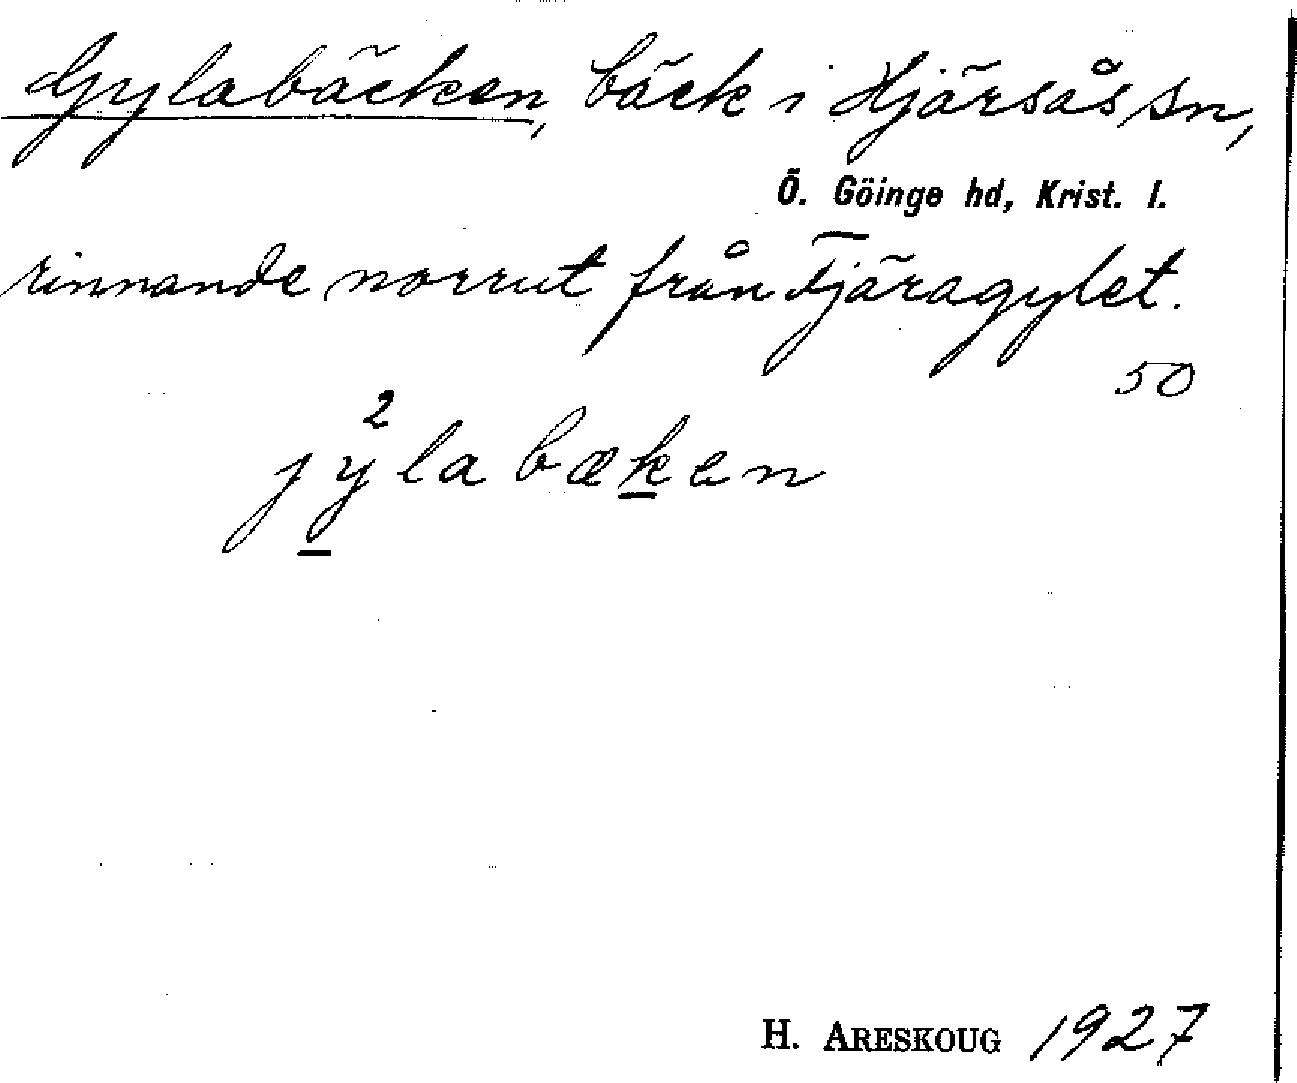 Gylabäcken, bäck i Hjärsås sn,
Ö. Göinge hd, Krist. l.
rinnande norrut från Tjäragylet.
50
2
jylabæken
H. ARESKOUG 1927